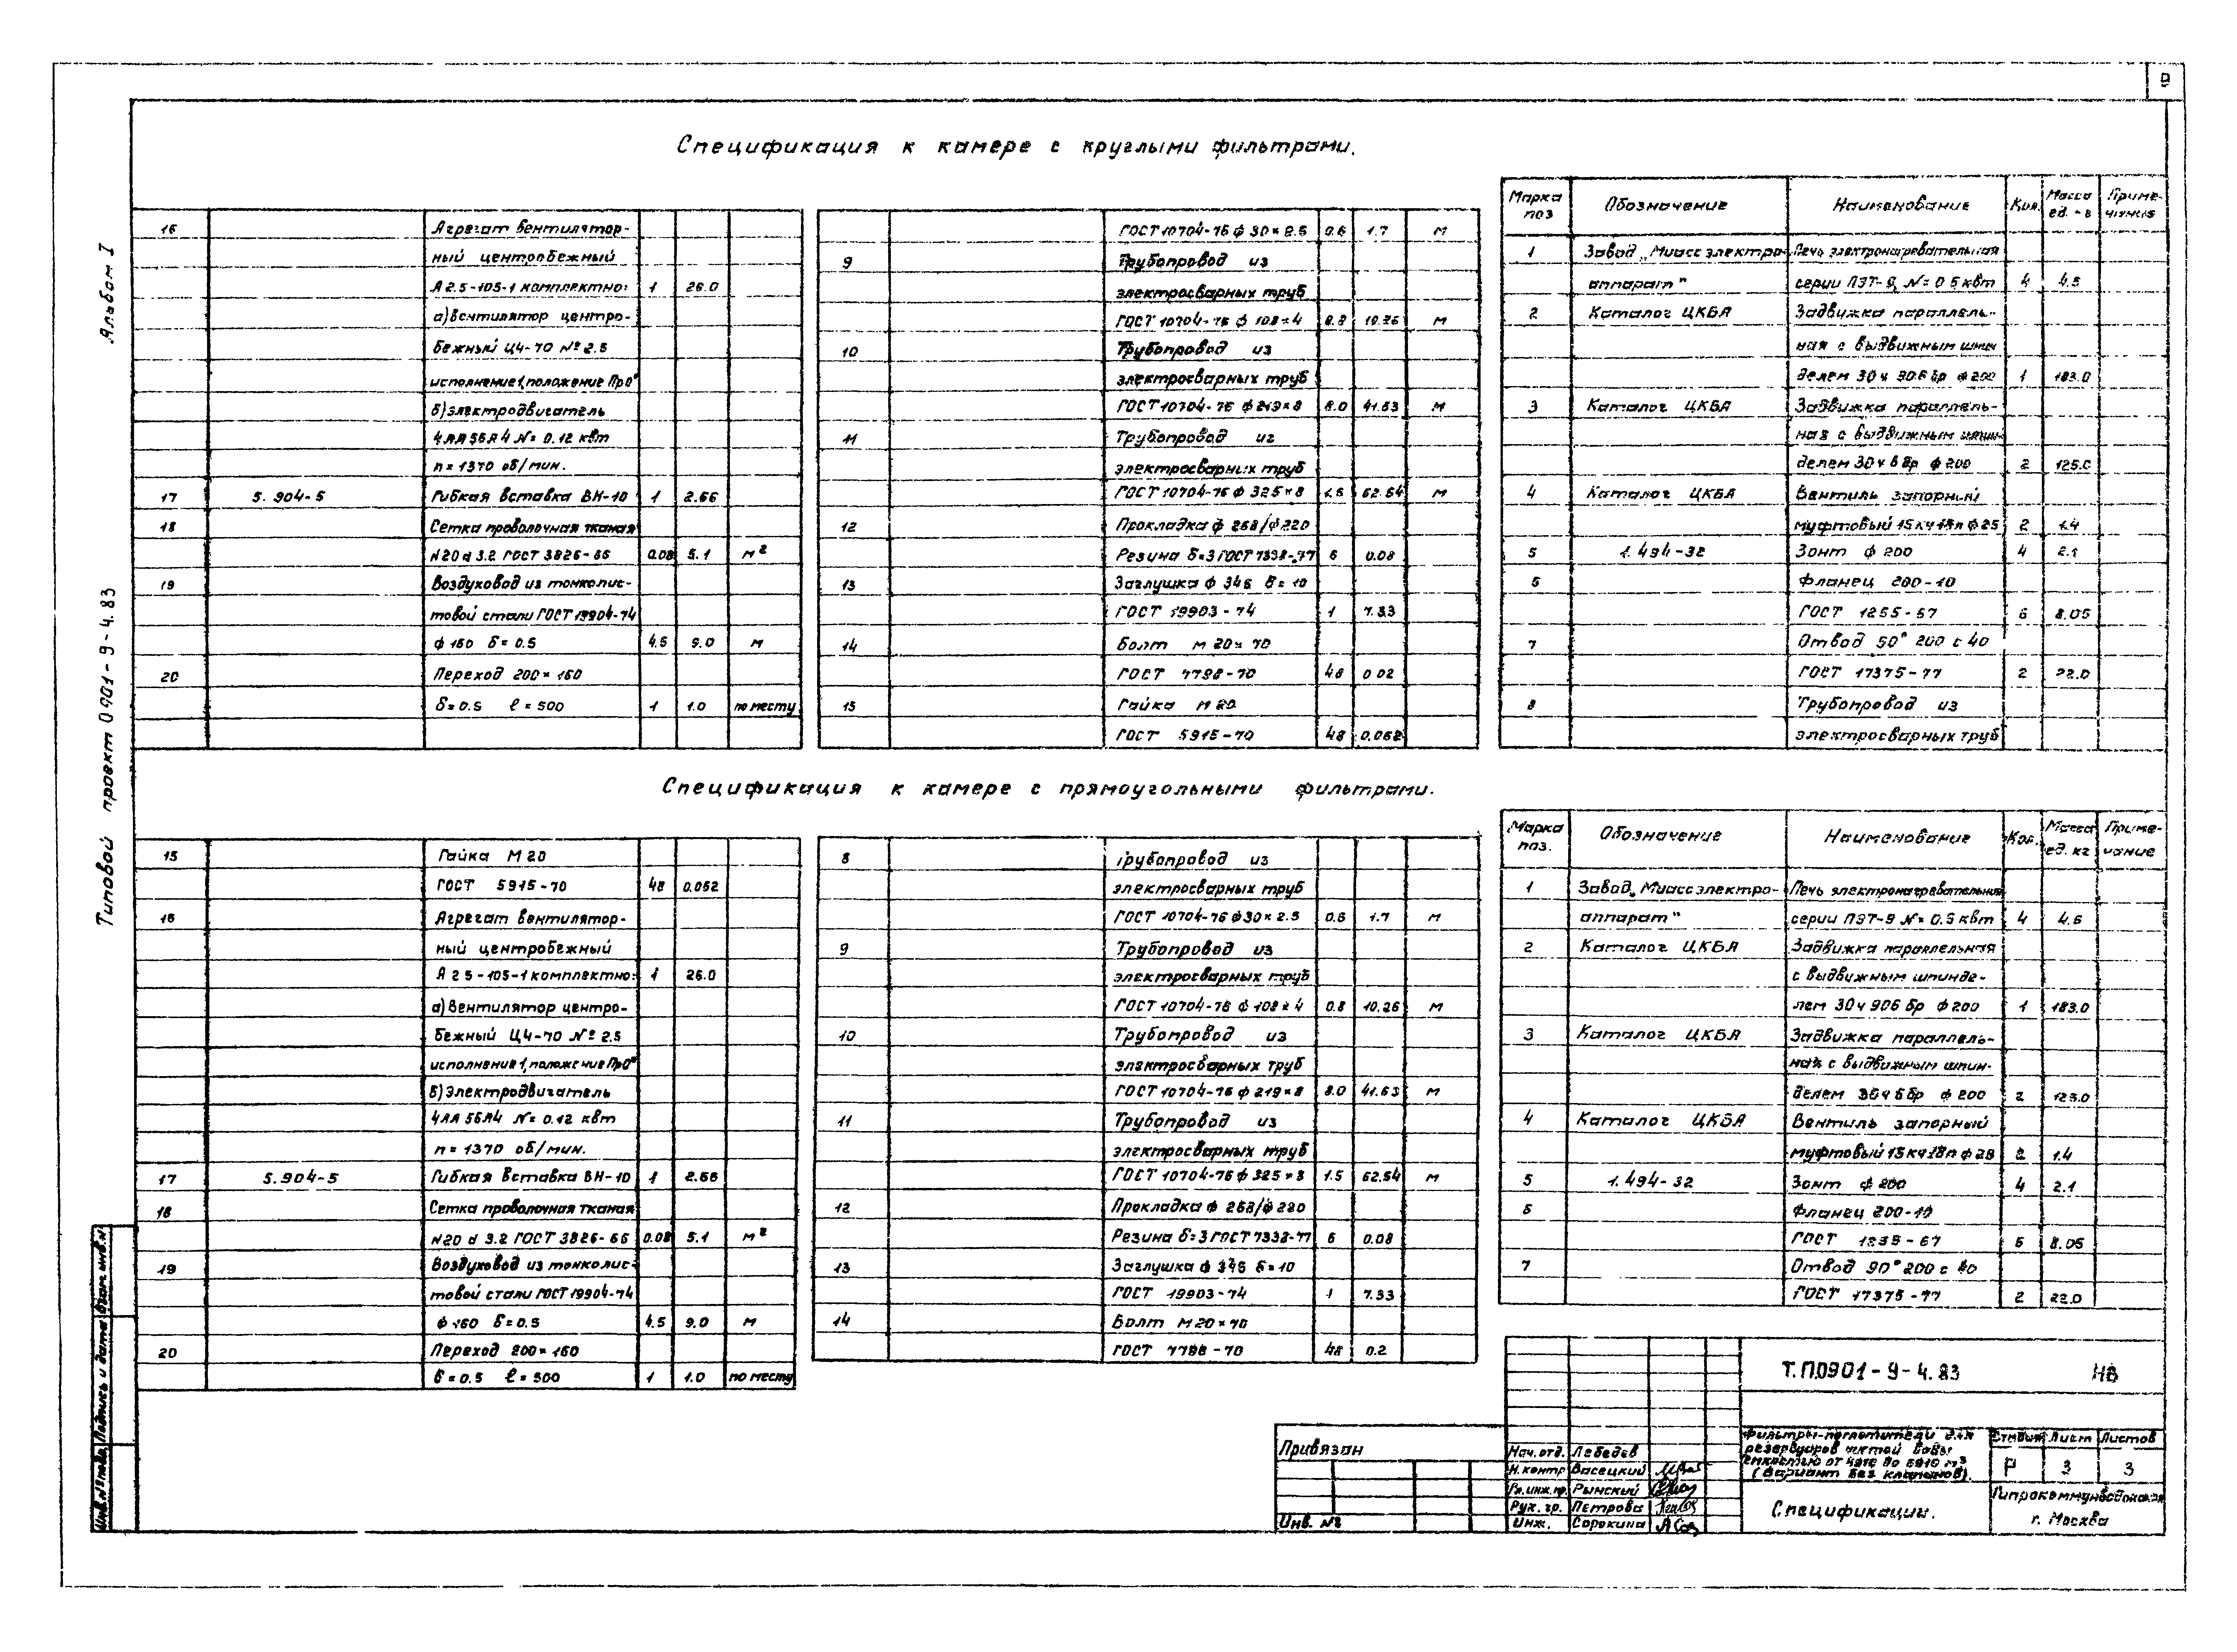 Альбом I
Типовой проект 0901-9-4.83
Спецификация к камере с круглыми фильтрами.
16 Агрегат вентилятор-
ный центробежный
А2.5-105-1 комплектно: 1 26.0
а) вентилятор центро-
бежный Ц4-70 №2.5
исполнение 1, положение Пр0°
б) электродвигатель
4АА56А4 N= 0.12 квт
n = 1370 об/мин.
17 5.904-5 Гибкая вставка ВН-10 1 2.66
18 Сетка проволочная тканая
N20 d 3.2 ГОСТ 3826-66 0.08 5.1 м²
19 Воздуховод из тонколис-
товой стали ГОСТ 19904-74
ф 160 δ= 0.5 4.5 9.0 м
20 Переход 200×160
δ=0.5 ℓ = 500 1 1.0 по месту
ГОСТ 10704-76 ф 30×2.5 0.6 1.7 м
9 Трубопровод из
электросварных труб
ГОСТ 10704-76 ф 108×4 0.8 10.26 м
10 Трубопровод из
электросварных труб
ГОСТ 10704-76 ф219×8 8.0 41.63 м
11 Трубопровод из
электросварных труб
ГОСТ 10704-76 ф 325×8 1.5 62.54 м
12 Прокладка ф 268/ф220
Резина δ=3 ГОСТ 7338-77 6 0.08
13 Заглушка ф 346 δ= 10
ГОСТ 19903-74 1 7.33
14 Болт м 20×70
ГОСТ 7798-70 48 0.02
15 Гайка М 20
ГОСТ 5915-70 48 0.062
Марка поз Обозначение Наименование Кол. Масса ед. Приме-чание
1 Завод „Миассэлектро- Печь электронагревательная
аппарат" серии ПЭТ-9, N= 0.5 квт 4 4.5
2 Каталог ЦКБА Задвижка параллель-
ная с выдвижным шпин
делем 30ч 906 бр ф 200 1 183.0
3 Каталог ЦКБА Задвижка параллель-
ная с выдвижным шпин-
делем 30ч 6 бр ф 200 2 125.0
4 Каталог ЦКБА Вентиль запорный
муфтовый 15кч18п ф25 2 1.4
5 1.494-32 Зонт ф 200 4 2.1
6 Фланец 200-10
ГОСТ 1255-67 6 8.05
7 Отвод 90° 200 с 40
ГОСТ 17375-77 2 22.0
8 Трубопровод из
электросварных труб
Спецификация к камере с прямоугольными фильтрами.
15 Гайка М 20
ГОСТ 5915-70 48 0.062
16 Агрегат вентилятор-
ный центробежный
А 2.5-105-1 комплектно: 1 26.0
а) Вентилятор центро-
бежный Ц4-70 №2.5
исполнение 1, положение Пр0°
б) Электродвигатель
4АА56А4 N= 0.12 квт
n = 1370 об/мин.
17 5.904-5 Гибкая вставка ВН-10 1 2.66
18 Сетка проволочная тканая
N20 d 3.2 ГОСТ 3826-66 0.08 5.1 м²
19 Воздуховод из тонколис-
товой стали ГОСТ 19904-74
ф 160 δ=0.5 4.5 9.0 м
20 Переход 200×160
δ=0.5 ℓ = 500 1 1.0 по месту
8 Трубопровод из
электросварных труб
ГОСТ 10704-76 ф30×2.5 0.6 1.7 м
9 Трубопровод из
электросварных труб
ГОСТ 10704-76 ф 108×4 0.8 10.26 м
10 Трубопровод из
электросварных труб
ГОСТ 10704-76 ф 219×8 8.0 41.63 м
11 Трубопровод из
электросварных труб
ГОСТ 10704-76 ф325×8 1.5 62.54 м
12 Прокладка ф 268/ф 220
Резина δ=3 ГОСТ 7338-77 6 0.08
13 Заглушка ф 346 δ=10
ГОСТ 19903-74 1 7.33
14 Болт М20×70
ГОСТ 7798-70 48 0.2
Марка поз. Обозначение Наименование Кол. Масса ед. кг Приме-чание
1 Завод „Миассэлектро- Печь электронагревательная
аппарат" серии ПЭТ-9 N= 0.5 квт 4 4.6
2 Каталог ЦКБА Задвижка параллельная
с выдвижным шпинде-
лем 30ч 906 бр ф200 1 183.0
3 Каталог ЦКБА Задвижка параллель-
ная с выдвижным шпин-
делем 30ч 6 бр ф 200 2 125.0
4 Каталог ЦКБА Вентиль запорный
муфтовый 15кч18п ф 25 2 1.4
5 1.494-32 Зонт ф 200 4 2.1
6 Фланец 200-10
ГОСТ 1255-67 6 8.05
7 Отвод 90° 200 с 40
ГОСТ 17375-77 2 22.0
Т.П.0901-9-4.83 НВ
Фильтры-поглотители для
резервуаров чистой воды
емкостью от
(Вариант без клапанов).
Стадия Лист Листов
Р 3 3
Спецификации.
Гипрокоммунводоканал
г. Москва
Привязан
Инв. №
Нач. отд. Лебедев
Н. контр Васецкий
Гл. инж. пр. Рынский
Рук. гр. Петрова
Инж. Сорокина
Инв. № подл. Подпись и дата Взам. инв. №